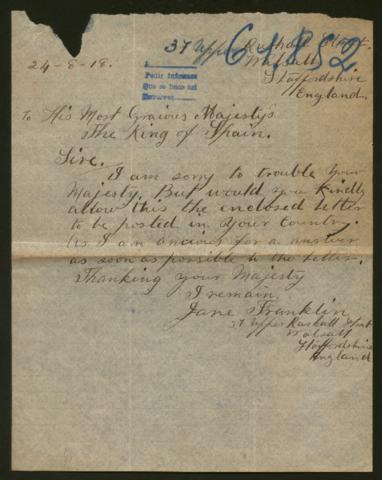 37 Upper Rushall Street.
61852
Walsall
24-8-18.
Staffordshire
England.
To His Most Gracious Majesty's
The King of Spain.
Sire.
I am sorry to trouble your
Majesty. But would you Kindly
allow this the enclosed letter
to be posted in Your Country.
As I am ancious for a answer
as soon as possible to the letter.
Thanking your Majesty
I remain,
Jane Franklin
37 Upper Rushall Street
Walsall
Staffordshire
England